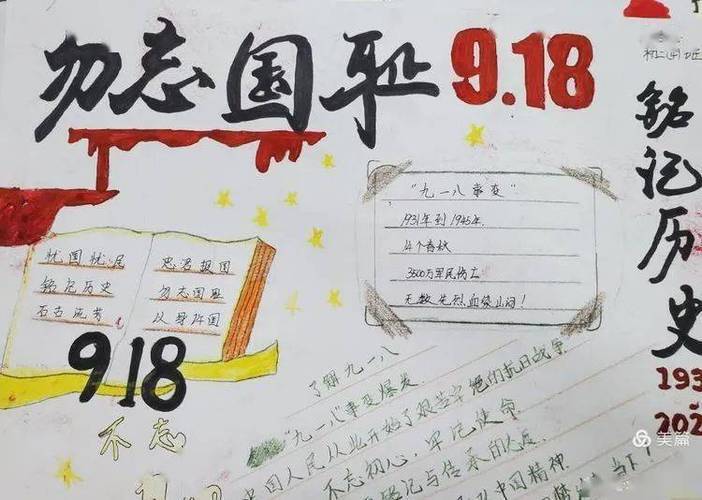 勿忘国耻 9.18
铭记历史
193
202
"九一八事变"
1931年到1945年.
14个春秋
3500万军民伤亡
无数先烈血染山河!
忧国忧民
铭记历史
忠君报国
勿忘国耻
以身许国
918
不忘
了解九一八
"九一八"事变爆发.
中国人民从此开始了艰苦卓绝的抗日战争
不忘初心, 牢记使命
中国精神
美篇